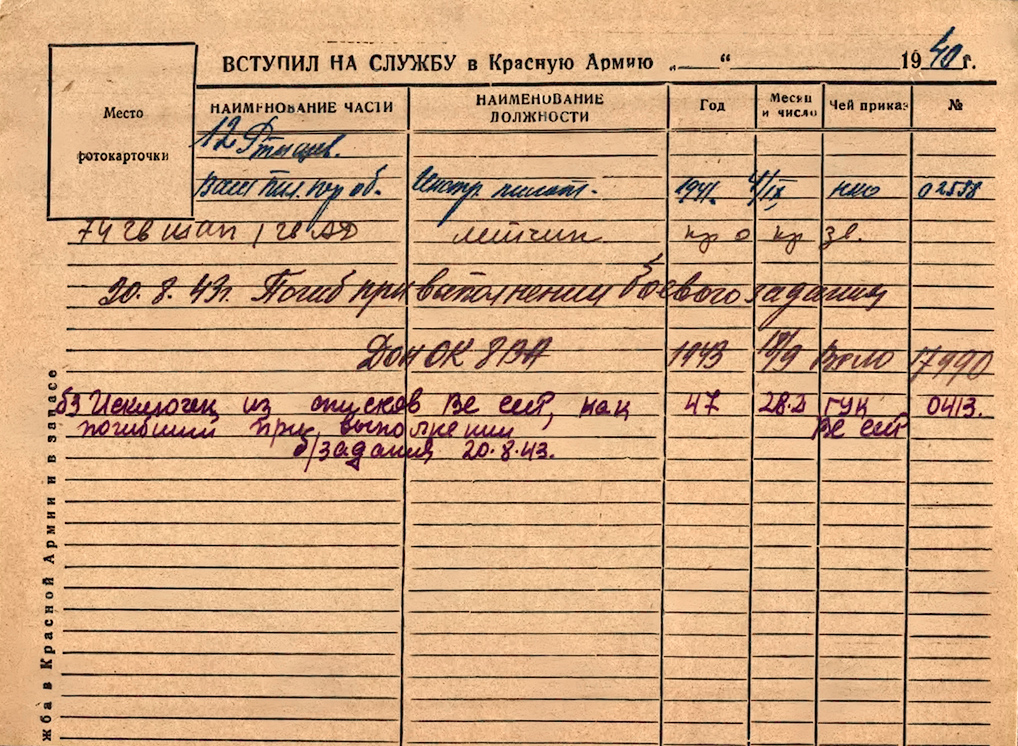 ВСТУПИЛ НА СЛУЖБУ в Красную Армию „ “ 1940 г.
Место
фотокарточки
НАИМЕНОВАНИЕ ЧАСТИ
НАИМЕНОВАНИЕ ДОЛЖНОСТИ
Год
Месяц и число
Чей приказ
№
12
Ваш пил. об. 1941. 4/IX НКО 02598
74 гв шап 1 гв АД летчик
20.8.43г. Погиб при выполнении боевого задания
Дон ОК 8ВА 1943 9 17990
бз Исключен из списков ВС ССР, как 47 28.2 ГУК 0413.
погибший при выполнении ВС ССР
б/задания 20.8.43.
жба в Красной Армии и в запасе